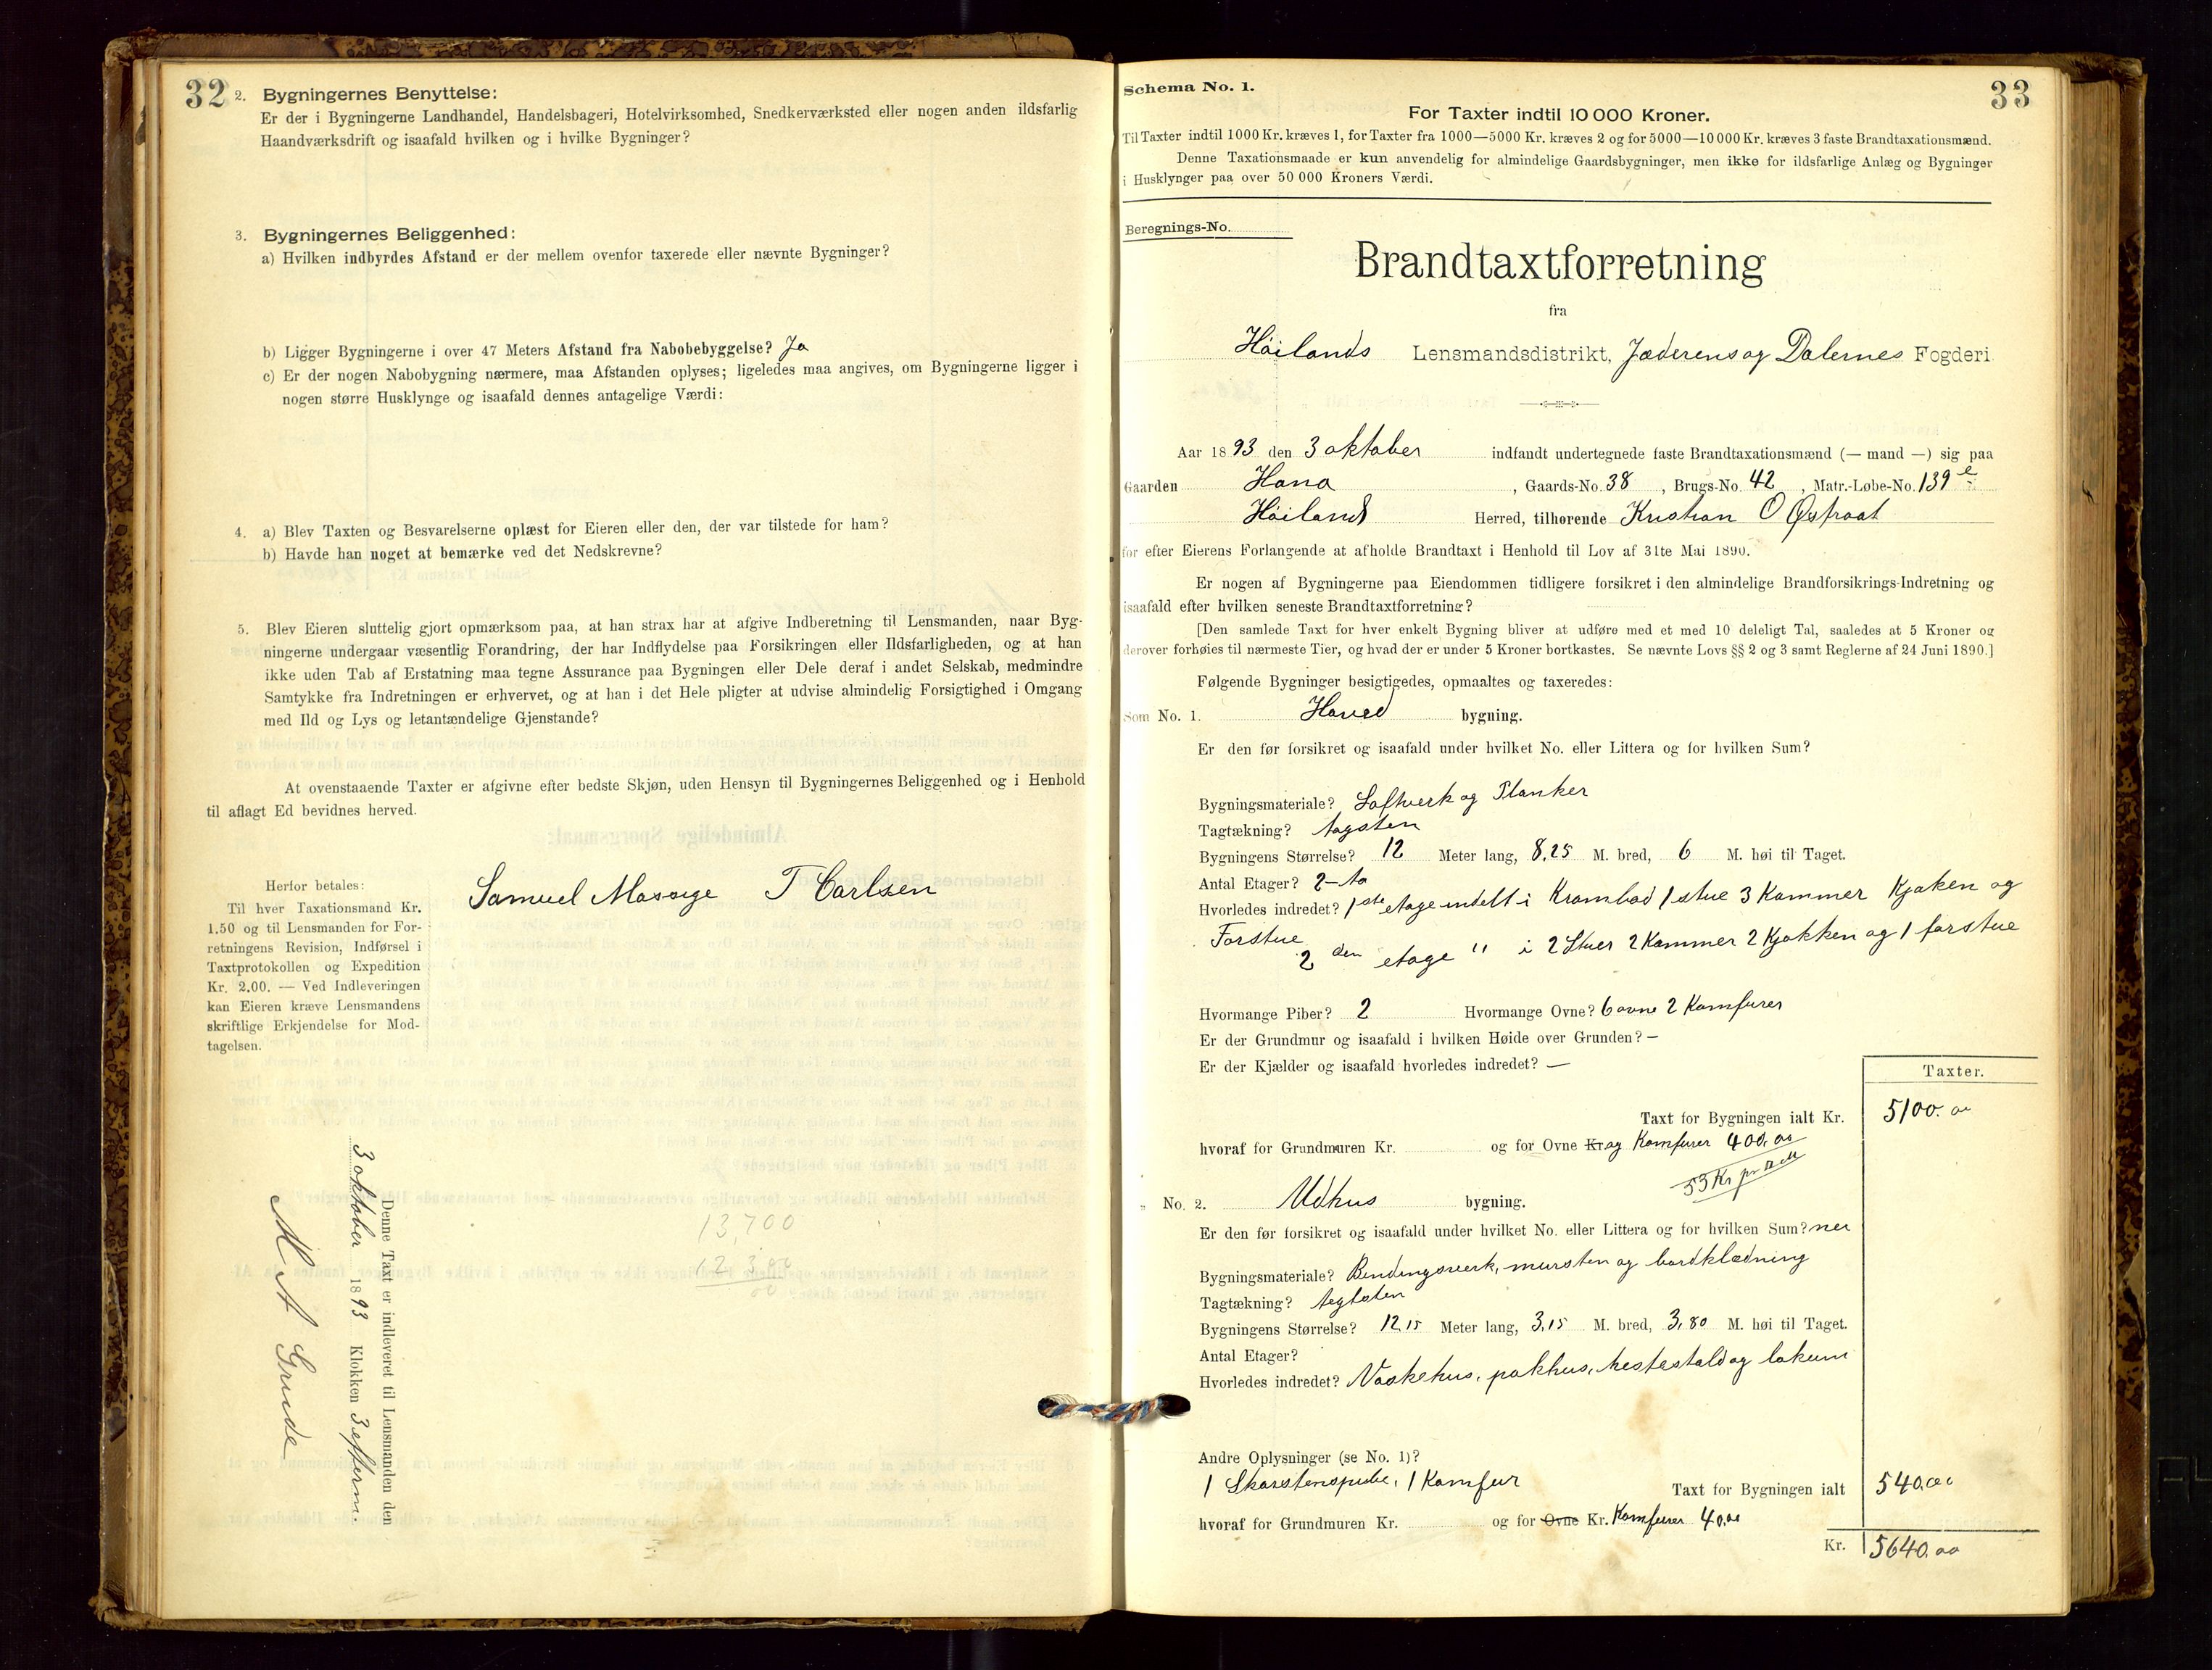 32
2. Bygningernes Benyttelse:
Er der i Bygningerne Landhandel, Handelsbageri, Hotelvirksomhed, Snedkerværksted eller nogen anden ildsfarlig
Haandværksdrift og isaafald hvilken og i hvilke Bygninger?
3. Bygningernes Beliggenhed:
a) Hvilken indbyrdes Afstand er der mellem ovenfor taxerede eller nævnte Bygninger?
b) Ligger Bygningerne i over 47 Meters Afstand fra Nabobebyggelse? Ja
c) Er der nogen Nabobygning nærmere, maa Afstanden oplyses; ligeledes maa angives, om Bygningerne ligger i
nogen større Husklynge og isaafald dennes antagelige Værdi:
4. a) Blev Taxten og Besvarelserne oplæst for Eieren eller den, der var tilstede for ham?
b) Havde han noget at bemærke ved det Nedskrevne?
5. Blev Eieren sluttelig gjort opmærksom paa, at han strax har at afgive Indberetning til Lensmanden, naar Byg-
ningerne undergaar væsentlig Forandring, der har Indflydelse paa Forsikringen eller Ildsfarligheden, og at han
ikke uden Tab af Erstatning maa tegne Assurance paa Bygningen eller Dele deraf i andet Selskab, medmindre
Samtykke fra Indretningen er erhvervet, og at han i det Hele pligter at udvise almindelig Forsigtighed i Omgang
med Ild og Lys og letantændelige Gjenstande?
At ovenstaaende Taxter er afgivne efter bedste Skjøn, uden Hensyn til Bygningernes Beliggenhed og i Henhold
til aflagt Ed bevidnes herved.
Samuel T Carlsen
Herfor betales:
Til hver Taxationsmand Kr.
1.50 og til Lensmanden for For-
retningens Revision, Indførsel i
Taxtprotokollen og Expedition
Kr. 2.00. — Ved Indleveringen
kan Eieren kræve Lensmandens
skriftlige Erkjendelse for Mod-
tagelsen.
Denne Taxt er indleveret til Lensmanden den
3 oktober 1893 Klokken 3 efterm.
M A Grude
13,700
33
Schema No. 1.
For Taxter indtil 10 000 Kroner.
Til Taxter indtil 1000 Kr. kræves 1, for Taxter fra 1000—5000 Kr. kræves 2 og for 5000—10 000 Kr. kræves 3 faste Brandtaxationsmænd.
Denne Taxationsmaade er kun anvendelig for almindelige Gaardsbygninger, men ikke for ildsfarlige Anlæg og Bygninger
i Husklynger paa over 50 000 Kroners Værdi.
Beregnings-No.
Brandtaxtforretning
fra
Høilands Lensmandsdistrikt, Jæderens og Dalernes Fogderi
Aar 1893 den 3 oktober indfandt undertegnede faste Brandtaxationsmænd (— mand —) sig paa
Gaarden Hana, Gaards-No. 38, Brugs-No. 42, Matr.-Løbe-No. 139 e
Høiland Herred, tilhørende Kristian O Østraat
for efter Eierens Forlangende at afholde Brandtaxt i Henhold til Lov af 31te Mai 1890.
Er nogen af Bygningerne paa Eiendommen tidligere forsikret i den almindelige Brandforsikrings-Indretning og
isaafald efter hvilken seneste Brandtaxtforretning?
[Den samlede Taxt for hver enkelt Bygning bliver at udføre med et med 10 deleligt Tal, saaledes at 5 Kroner og
derover forhøies til nærmeste Tier, og hvad der er under 5 Kroner bortkastes. Se nævnte Lovs §§ 2 og 3 samt Reglerne af 24 Juni 1890.]
Følgende Bygninger besigtigedes, opmaaltes og taxeredes:
Som No. 1. Hoved bygning.
Er den før forsikret og isaafald under hvilket No. eller Littera og for hvilken Sum?
Bygningsmateriale? Loftverk og Planker
Tagtækning? tagsten
Bygningens Størrelse? 12 Meter lang, 8,25 M. bred, 6 M. høi til Taget.
Antal Etager? 2-to
Hvorledes indredet? 1ste etage indelt i Krambod 1 stue 3 Kammer Kjøken og
Forstue
2den etage " i 2 Stuer 2 Kammer 2 Kjøkken og 1 forstue
Hvormange Piber? 2 Hvormange Ovne? 6 ovne 2 Komfurer
Er der Grundmur og isaafald i hvilken Høide over Grunden? —
Er der Kjælder og isaafald hvorledes indredet? —
Taxter.
Taxt for Bygningen ialt Kr. 5100.00
hvoraf for Grundmuren Kr. og for Ovne Kr og Komfurer 400,00
53 Kr pr
" No. 2. Udhus bygning.
Er den før forsikret og isaafald under hvilket No. eller Littera og for hvilken Sum? nei
Bygningsmateriale? Bindingsverk, mursten og bordklædning
Tagtækning? tegлsten
Bygningens Størrelse? 12,15 Meter lang, 3,15 M. bred, 3,80 M. høi til Taget.
Antal Etager?
Hvorledes indredet? Vaskehus, pakhus, hestestald og lokum
Andre Oplysninger (se No. 1)?
1 Skorstenspibe, 1 Komfur Taxt for Bygningen ialt 540,00
hvoraf for Grundmuren Kr. og for Ovne Kr. Komfurer 40,00
Kr. 5640,00